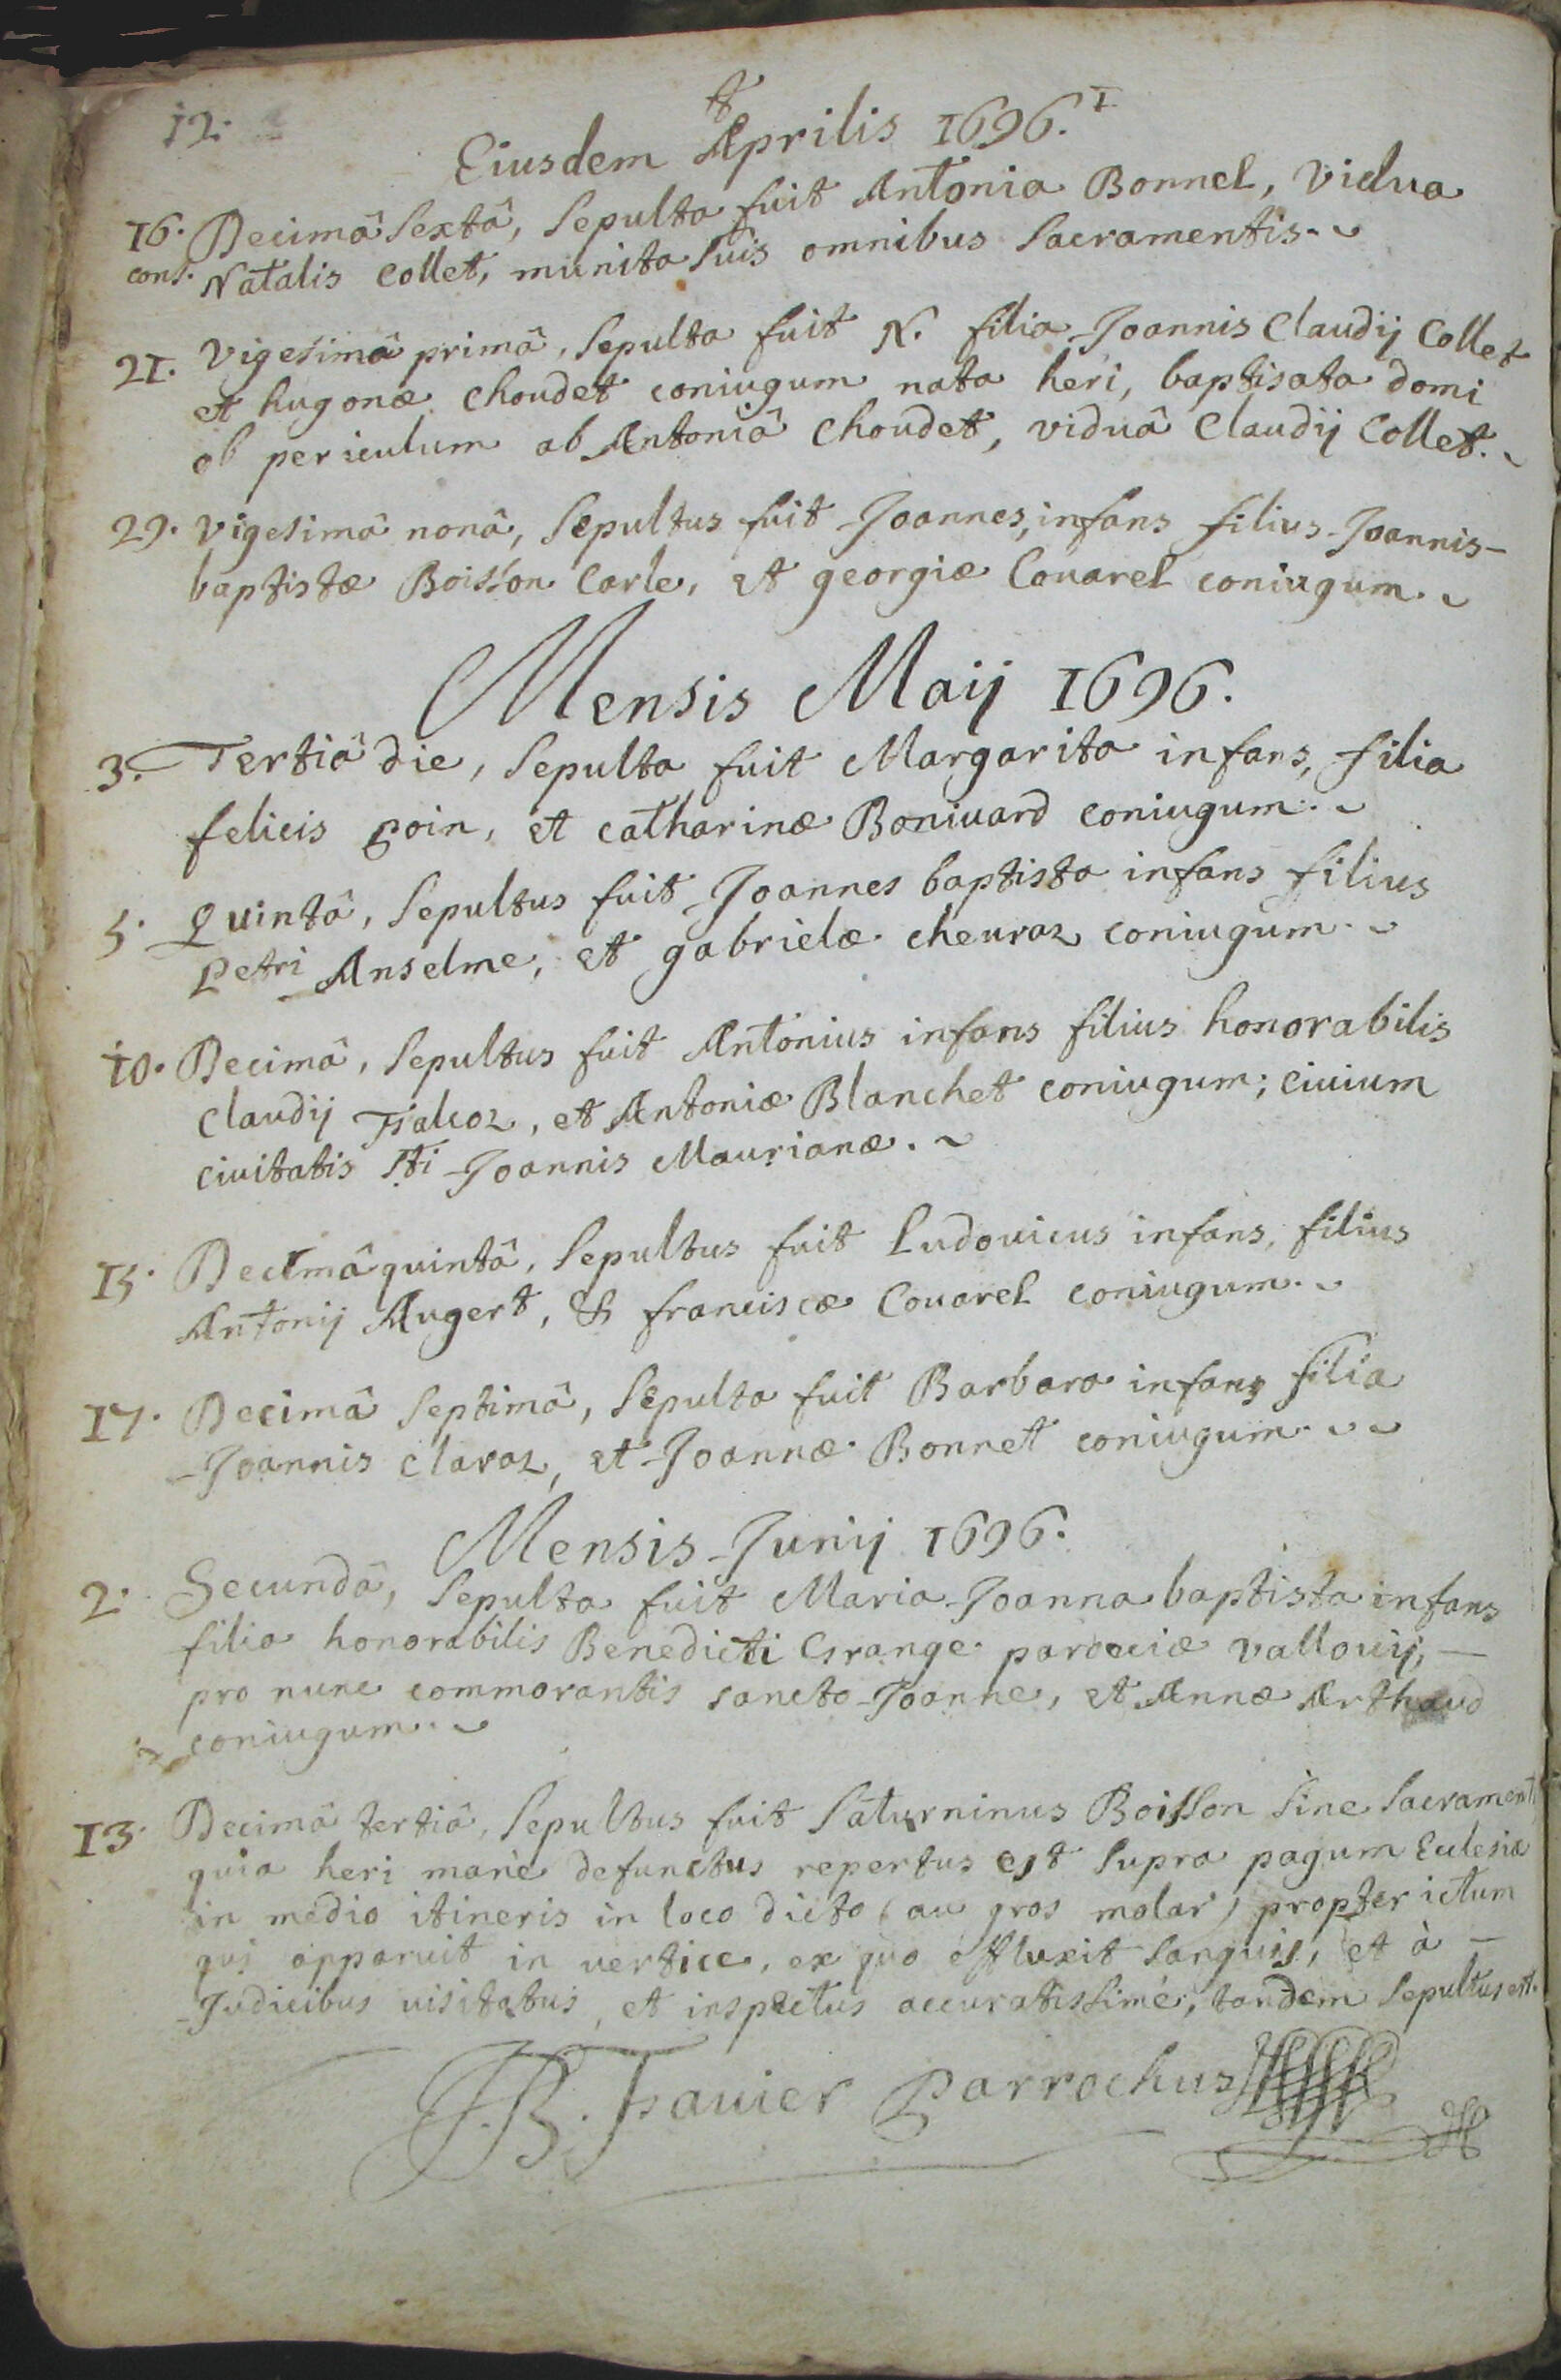 12.
Eiusdem Aprilis 1696.
16. Decimâ Sextâ, Sepulta fuit Antonia Bonnel, vidua
cons. Natalis Collet, munita suis omnibus Sacramentis.
21. vigesimâ primâ, Sepulta fuit N. filia Joannis Claudij Collet
et hugonæ choudet coniugum nata heri, baptisata domi
ob periculum ab Antoniâ choudet, viduâ Claudij Collet.
29. vigesimâ nonâ, Sepultus fuit Joannes, infans filius Joannis-
baptistæ Boisson Carle, et georgiæ Couarel coniugum.
Mensis Maij 1696.
3. Tertiâ die, Sepulta fuit Margarita infans, filia
felicis poin, et catharinæ Boniuard coniugum.
5. Quintâ, Sepultus fuit Joannes baptista infans filius
Petri Anselme, et gabrielæ cheuraz coniugum.
10. Decimâ, Sepultus fuit Antonius infans filius honorabilis
Claudij, et Antoniæ Blanchet coniugum; ciuium
ciuitatis Sti Joannis Maurianæ.
15. Decimâ quintâ, Sepultus fuit Ludouicus infans, filius
Antonij Augert, & franciscæ Couarel coniugum.
17. Decimâ Septimâ, Sepulta fuit Barbara infans filia
Joannis claraz, et Joannæ Bonnet coniugum.
Mensis Junij 1696.
2. Secundâ, Sepulta fuit Maria Joanna baptista infans
filia honorabilis Benedicti Grange parociæ vallouij, -
pro nunc commorantis sancto Joanne, et Annæ Arthaud
coniugum.
13. Decimâ tertiâ, Sepultus fuit Saturninus Boisson Sine Sacramenti
quia heri manè defunctus repertus est Supra pagum Eclesiæ
in medio itineris in loco dicto (au gros molar) propter ictum
qui apparuit in vertice, ex quo effluxit sanguis, et à -
Judicibus uisitatus, et inspectus accuratissimè, tandem Sepultus est.
J.B. Fauier Parrochus